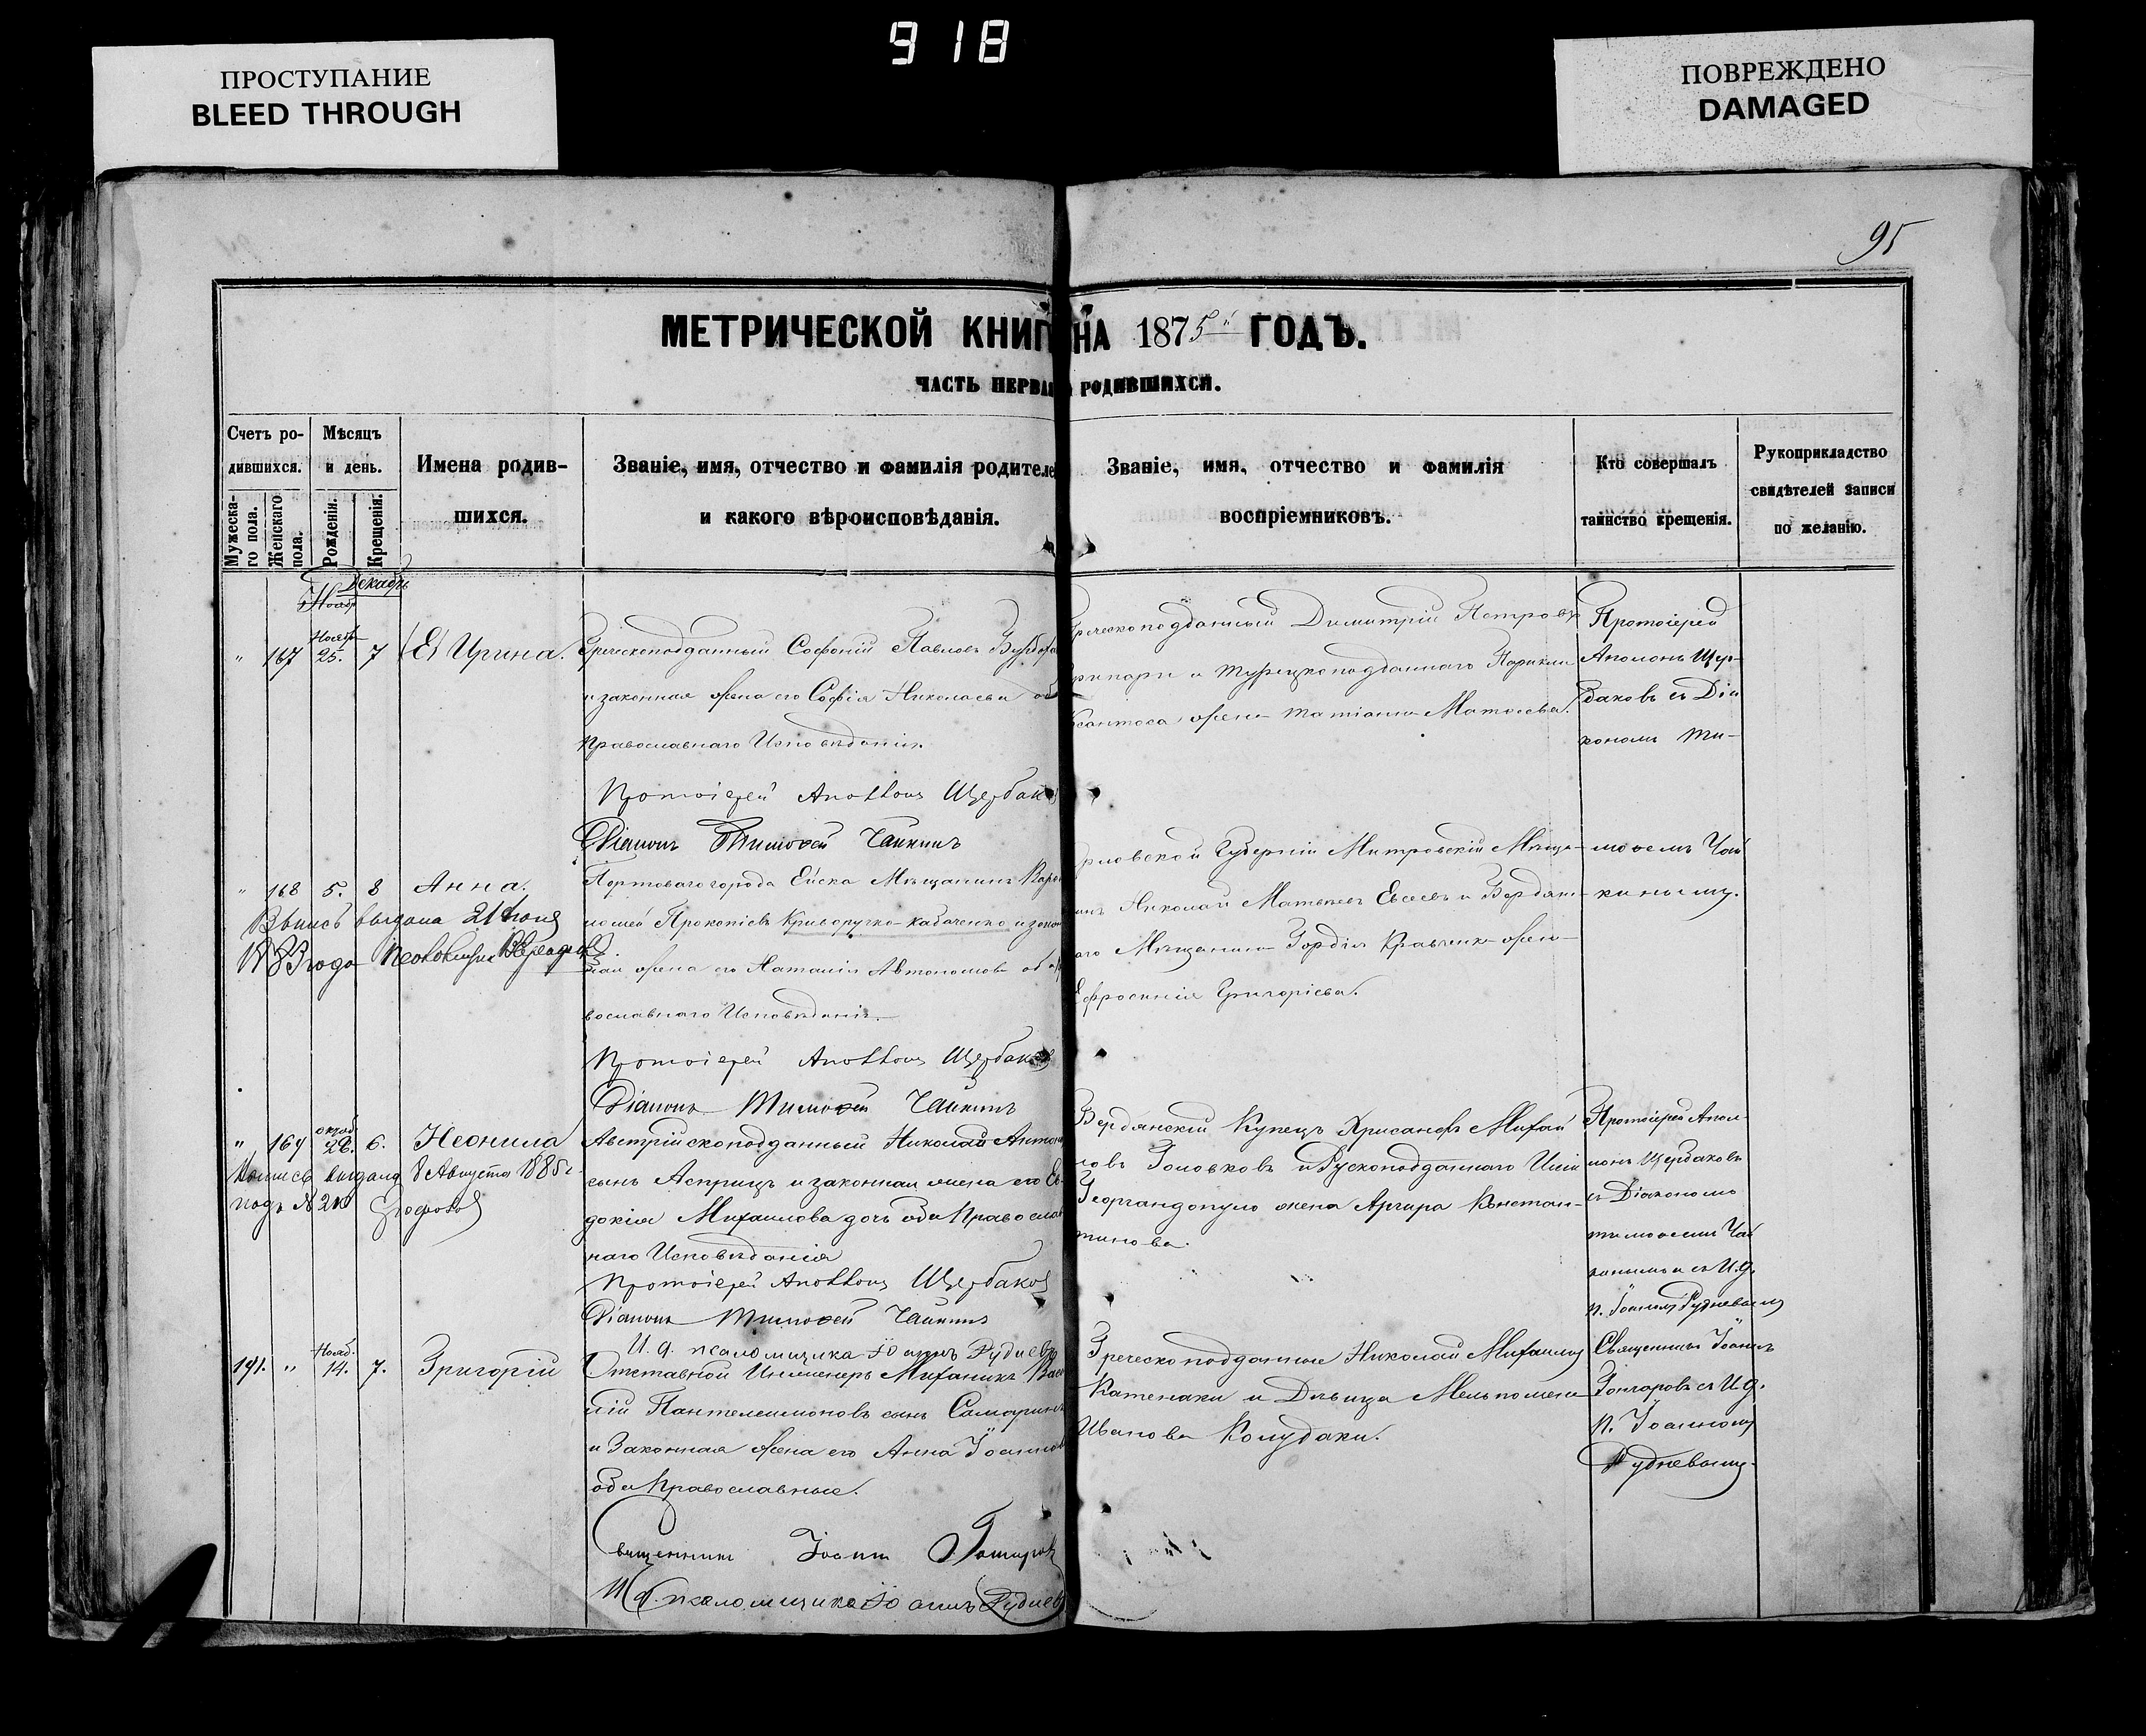 918
ПРОСТУПАНИЕ
BLEED THROUGH
ПОВРЕЖДЕНО
DAMAGED
95
МЕТРИЧЕСКОЙ КНИГ НА 1875 й ГОДЪ.
ЧАСТЬ ПЕРВАЯ РОДИВШИХСЯ.
Счетъ ро-
дившихся.
Мужеска-
го пола.
Женскаго
пола.
Мѣсяцъ
и день.
Рожденія.
Крещенія.
Имена родив-
шихся.
Званіе, имя, отчество и фамилія родителе
и какого вѣроисповѣданія.
Званіе, имя, отчество и фамилія
воспріемниковъ.
Кто совершалъ
таинство крещенія.
Рукоприкладство
свидѣтелей записи
по желанію.
Декабрь
Нояб
" 167 Ноябр 25. 7 Ирина.
Греческоподданный Софоній Павловъ
и законная жена его Софія Николаева об
православнаго Исповѣданія.
Протоіерей Аполлонъ Щербаков
Діаконъ Тимоѳей Чайкинъ
Греческоподданный Димитрій Петровъ
и Турецкоподданнаго
жена Татіана Матвеева.
Протоіерей
Аполонъ Щер-
баковъ съ Діа
кономъ Ти-
" 168 5. 8 Анна.
Выпись выдана 21 Іюня
1883 года
Портоваго города Ейска Мѣщанинъ
Прокопіевъ Криворучко-Кабаченко и закон
ная жена его Наталія Автономова об
вославнаго Исповѣданія.
Протоіерей Аполлонъ Щербаков
Діаконъ Тимоѳей Чайкинъ
Орловской Губерніи Митровскій Мѣща-
нинъ Николай Матвѣевъ Евсеевъ и Бердян-
аго Мѣщанина Гордія Кравченка жена
Ефросинія Григоріева.
моѳеемъ Чай
кинымъ.
" 169 октяб 26. 6. Неонила
Выпись выдана 8 Августа 1885 г
подъ №
Австрійскоподданный Николай Антон
сынъ Асприцъ и законная жена его Ев-
докія Михаилова дочь оба Православ
наго Исповѣданія
Протоіерей Аполлонъ Щербаков
Діаконъ Тимоѳей Чайкинъ
И. д. псаломщика Іоаннъ Рудневъ
Бердянскій Купецъ Хрисанфъ Михай
ловъ Головковъ и Рускоподданнаго
Георгандопуло жена Аргира Констан-
тинова.
Протоіерей Апол-
лонъ Щербаковъ
съ Діакономъ
Тимоѳеемъ Чай
кинымъ и съ И.д.
п. Іоанномъ Рудневымъ
191. " Нояб. 14. 7. Григорій
Отставной Инженеръ Механикъ Васи
лій Пантелеимоновъ сынъ Самаринъ
и Законная жена его Анна Іоаннов
оба Православные.
Священникъ Іоаннъ Гончаровъ
И.д. псаломщика Іоаннъ Руднев
Греческоподданные Николай Михаилъ
Катенаки и Дѣвица Мельпомена
Иванова Колудаки.
Священникъ Іоаннъ
Гончаровъ съ И.д.
п. Іоанномъ
Рудневымъ.